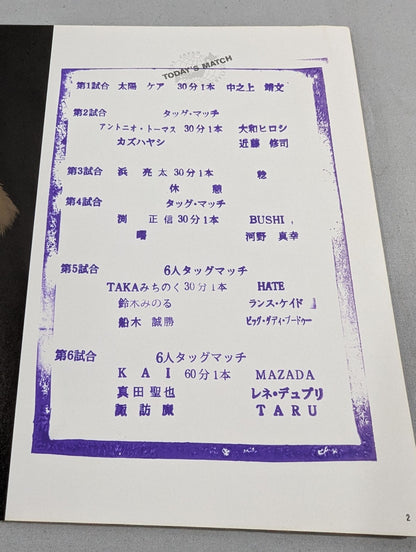 TODAY'S MATCH
第1試合 太陽 ケア 30分1本 中之上 靖文
第2試合 タッグ・マッチ
アントニオ・トーマス 30分1本 大和ヒロシ
カズハヤシ 近藤 修司
第3試合 浜 亮太 30分1本 稔
休憩
第4試合 タッグ・マッチ
渕 正信 30分1本 BUSHI
曙 河野 真幸
第5試合 6人タッグマッチ
TAKAみちのく 30分1本 HATE
鈴木みのる ランス・ケイド
船木 誠勝 ビッグ・ダディ・ブードゥー
第6試合 6人タッグマッチ
KAI 60分1本 MAZADA
真田聖也 レネ・デュプリ
諏訪魔 TARU
2